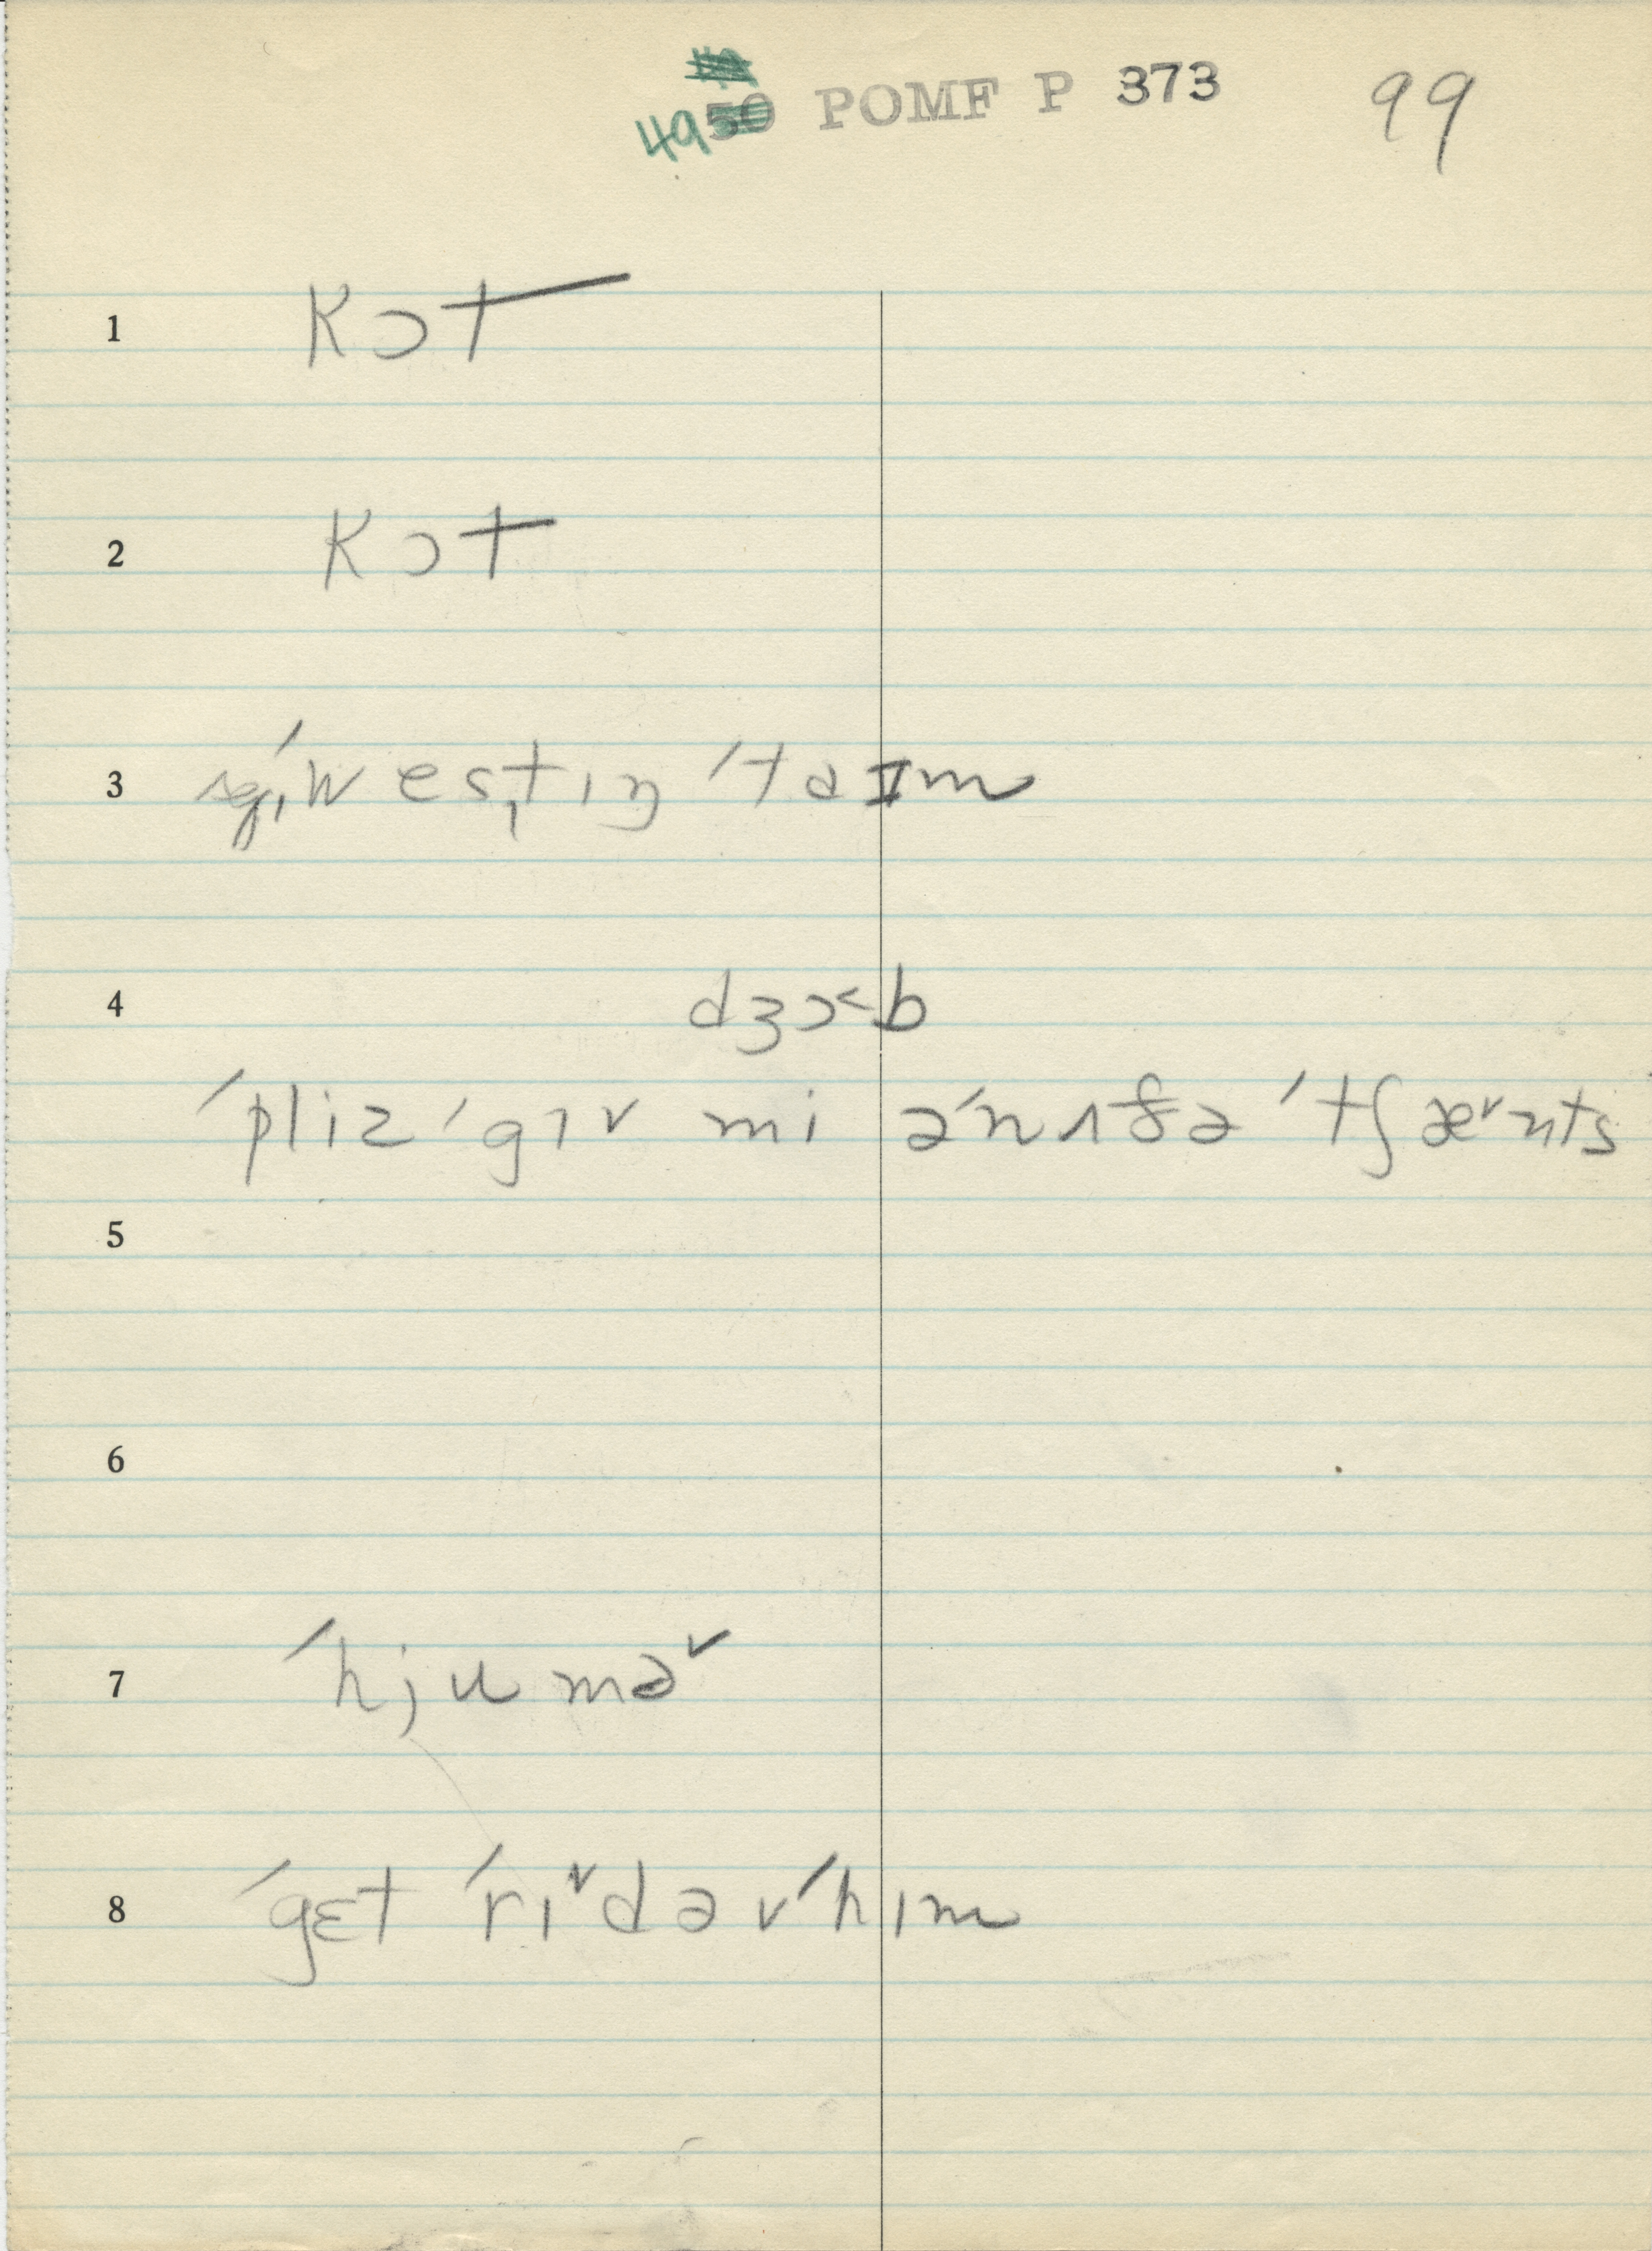 49 50 POMF P 373 99
1 kɔt
2 kɔt
3 ˈwestɪŋ ˈtaɪm
4 dʒɔ˂b
ˈpliz ˈgɪv mi əˈnʌðə ˈtʃæ˅nts
5
6
7 ˈhjumə˅
8 ˈgɛt ˈrɪ˅d əv ˈhɪm